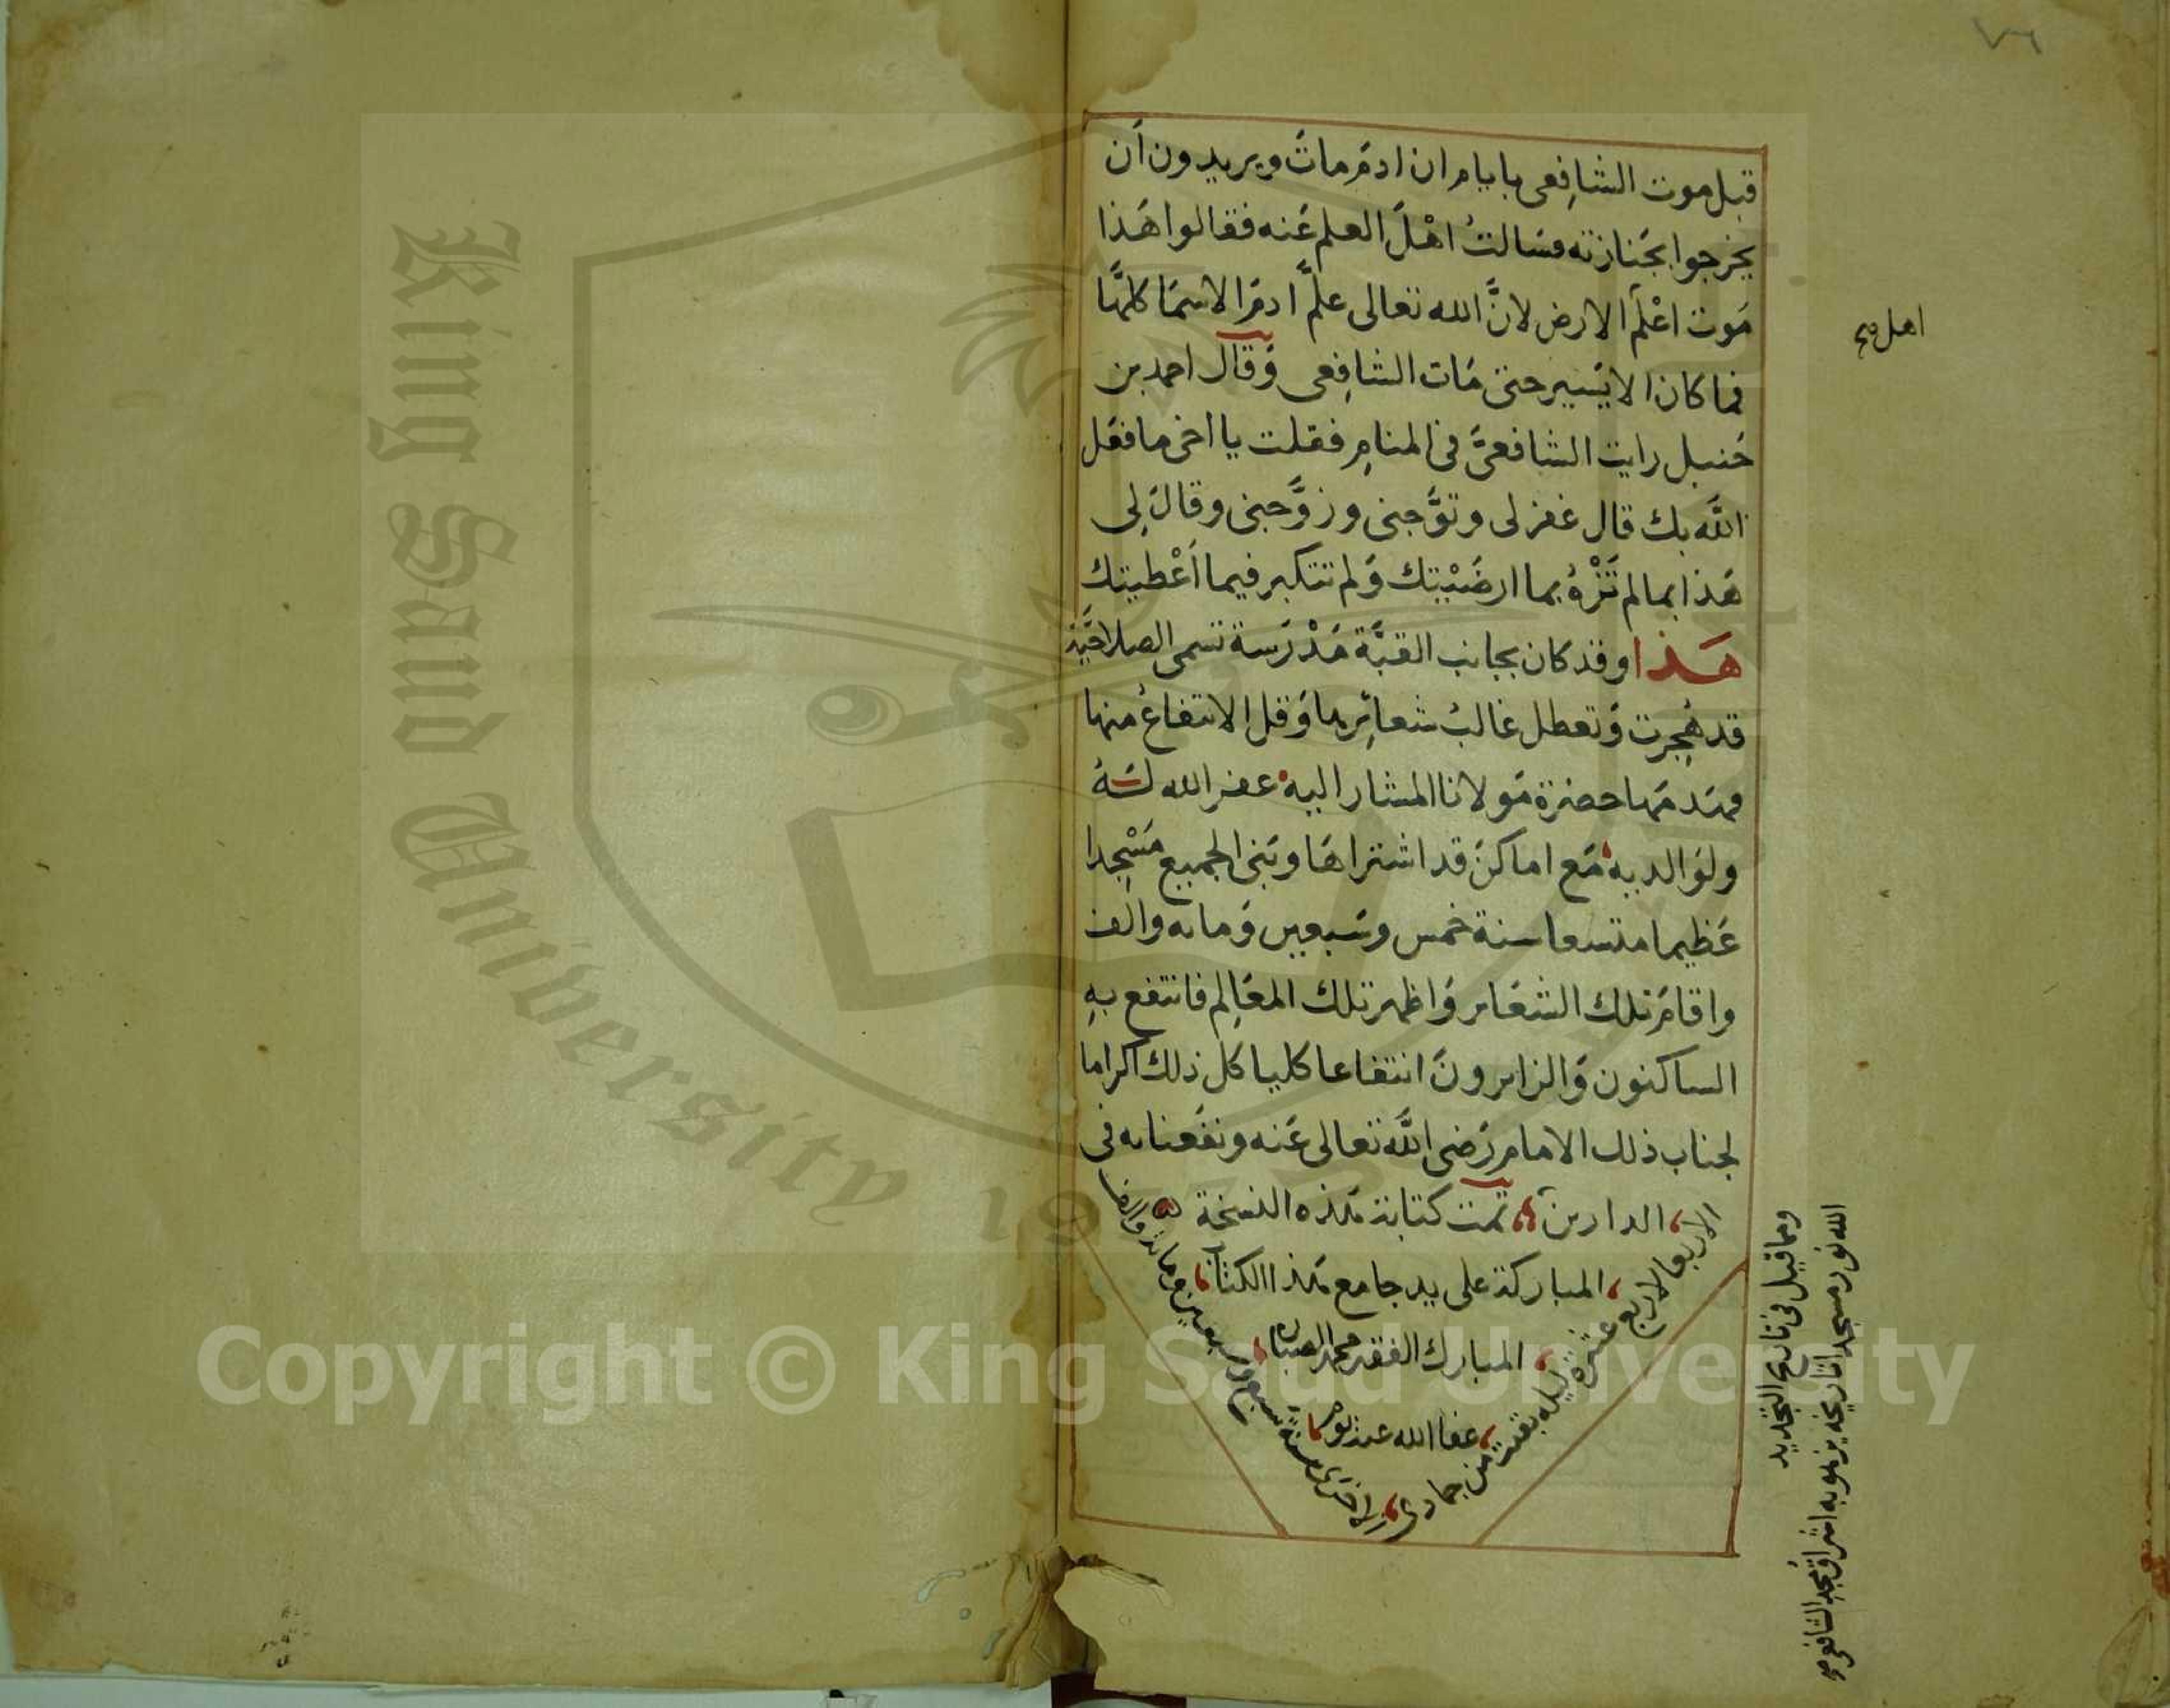 ٧٦
قبل موت الشافِعى بايام ان ادمَ ماتَ ويريدون أن
يخرجوا بجَنازته فسَالتُ اهْلَ العلم عَنه فقالوا هَذا
مَوت اعْلَم الارض لانَّ الله تعالى علَّم ادمَ الاسمَا كلهَّا
اهل صح
فما كان الا يَسير حتى مَات الشافِعى وَقال احمد بن
حَنبل رايت الشافعىَّ فى المنامِ فقلت يا اخى ما فعَل
اللَّه بك قال غفر لى وتوَّجنى وزوَّجنى وقالَ لِى
هَذا بما لم تَزْهُ بما ارضَيْتك وَلم تتكبر فيما أعْطيتك
هَذا وقد كان بجانب القبَّة مَدْرَسة تسمى الصلاحيَّة
قد هُجِرت وَتعطل غالبُ شعائِرها وَقل الانتفاعُ منها
فهَدمَها حضرة مَولانا المشار اليه غفر الله لَهُ
ولوَالديه مَع اماكنَ قد اشتراهَا وبَنى الجميع مَسْجدا
عَظيما متسعا سنة خمس وسَبعين وَمايه والف
واقامَ تلك الشعَاير وَاظهر تلك المعَالِم فانتفع بهِ
الساكنون وَالزايرونَ انتفاعا كليا كل ذلك اكراما
لجناب ذلك الامام رَضى اللَّه تعالى عَنه ونفَعنا به فى
الدارين تمت كتابة هَذه النسخة
المباركة على يد جامع هَذا الكتاب
المبارك الفقير محمد الصبان
عفا الله عنه
الاربعا لاربع عشرة ليلة بقيت من جمادى
الاخرى سنة سبع وسبعين ومائة والف
ومما قيل فى تاريخ التجديد
الله نور مسجدا تاريخه يزهو به اشراق مجد الشافعى
King Saud University
1957
Copyright © King Saud University